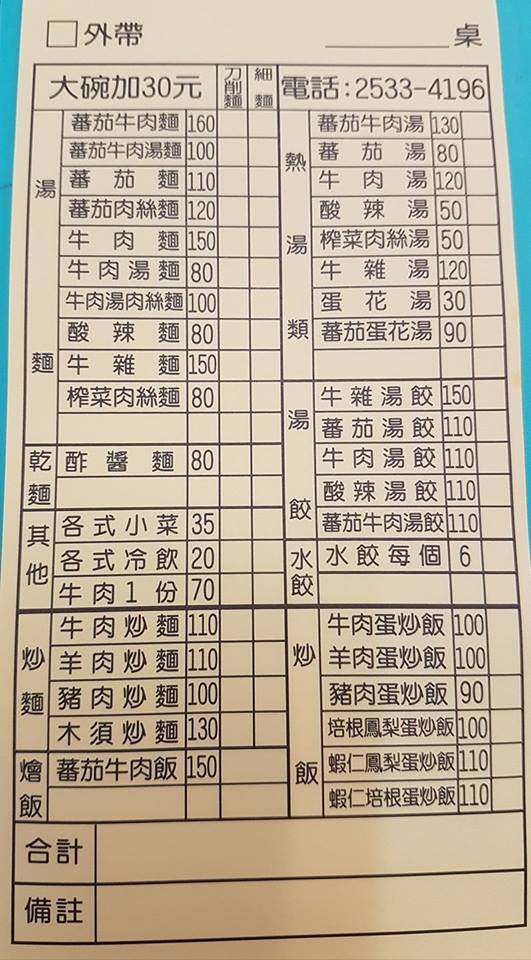 □外帶 ________桌
大碗加30元 刀削麵 細麵 電話:2533-4196
湯麵
蕃茄牛肉麵 160
蕃茄牛肉湯麵 100
蕃茄麵 110
蕃茄肉絲麵 120
牛肉麵 150
牛肉湯麵 80
牛肉湯肉絲麵 100
酸辣麵 80
牛雜麵 150
榨菜肉絲麵 80
乾麵
酢醬麵 80
其他
各式小菜 35
各式冷飲 20
牛肉1份 70
炒麵
牛肉炒麵 110
羊肉炒麵 110
豬肉炒麵 100
木須炒麵 130
燴飯
蕃茄牛肉飯 150
熱湯類
蕃茄牛肉湯 130
蕃茄湯 80
牛肉湯 120
酸辣湯 50
榨菜肉絲湯 50
牛雜湯 120
蛋花湯 30
蕃茄蛋花湯 90
湯餃
牛雜湯餃 150
蕃茄湯餃 110
牛肉湯餃 110
酸辣湯餃 110
蕃茄牛肉湯餃 110
水餃
水餃每個 6
炒飯
牛肉蛋炒飯 100
羊肉蛋炒飯 100
豬肉蛋炒飯 90
培根鳳梨蛋炒飯 100
蝦仁鳳梨蛋炒飯 110
蝦仁培根蛋炒飯 110
合計
備註